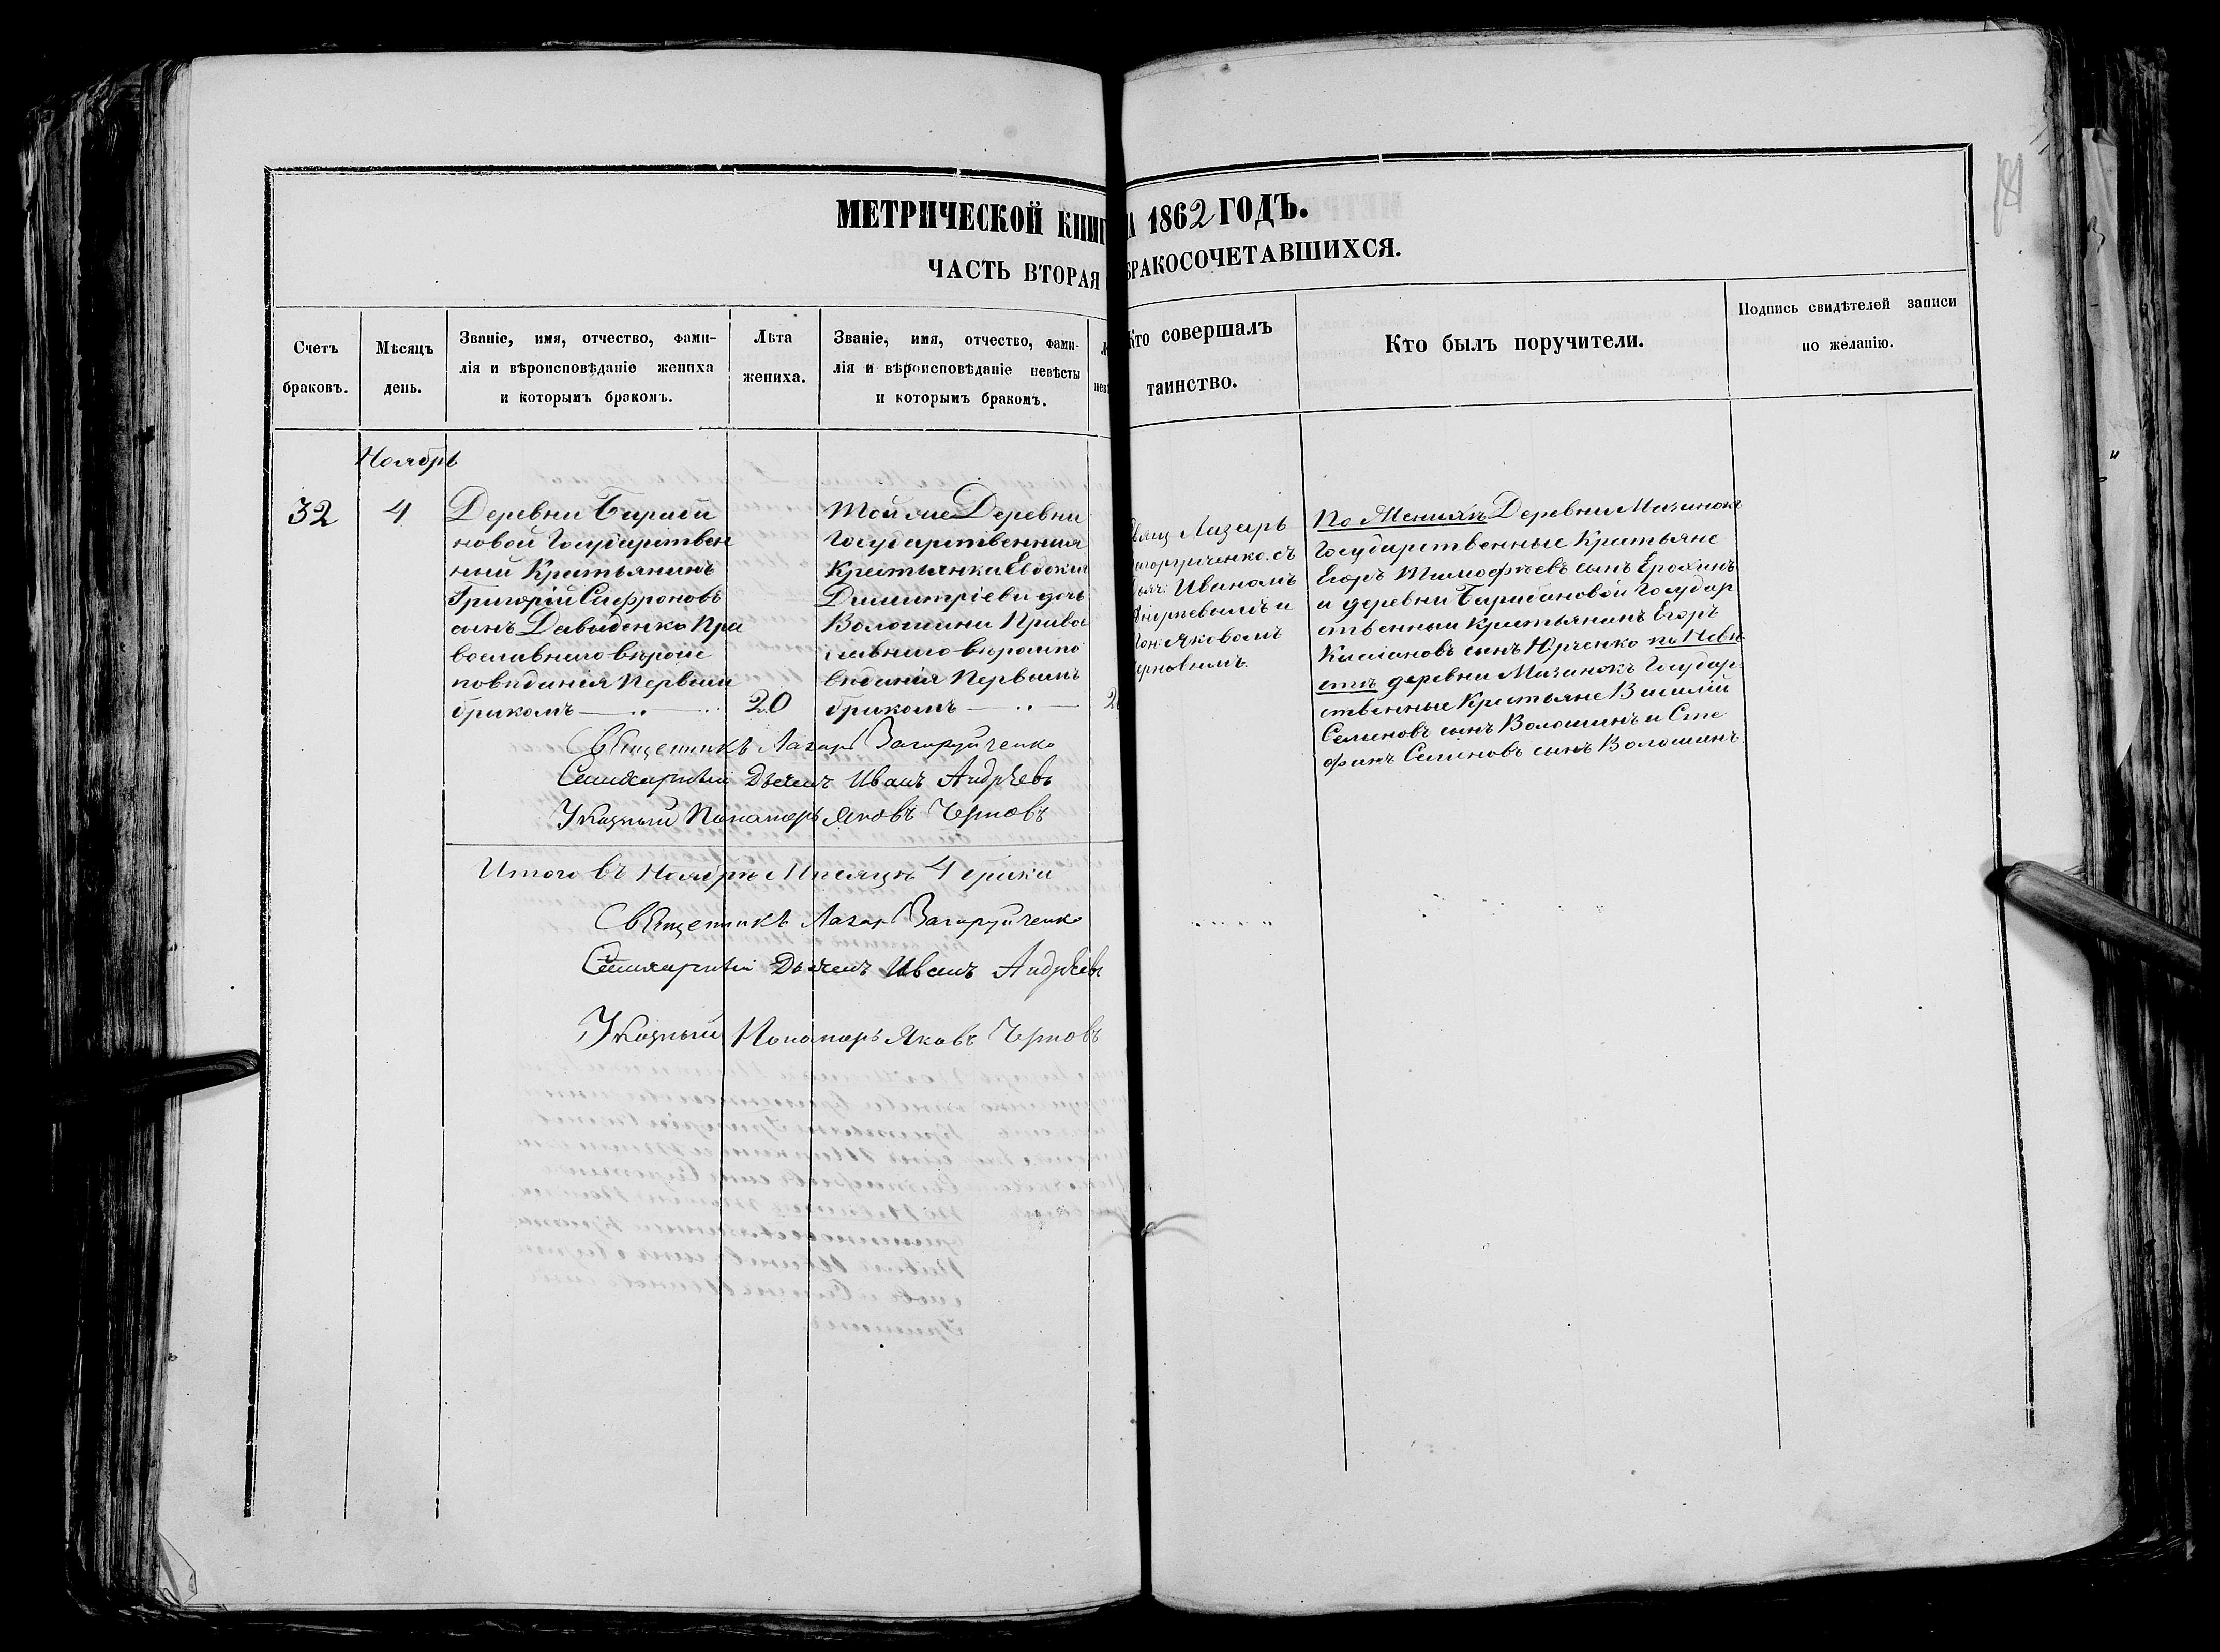 МЕТРИЧЕСКОЙ КНИГ
А 1862 ГОДЪ.
ЧАСТЬ ВТОРАЯ
БРАКОСОЧЕТАВШИХСЯ.
Счетъ браковъ.
Мѣсяцъ день.
Званіе, имя, отчество, фами-
лія и вѣроисповѣданіе жениха
и которымъ бракомъ.
Лѣта жениха.
Званіе, имя, отчество, фами-
лія и вѣроисповѣданіе невѣсты
и которымъ бракомъ.
Кто совершалъ
таинство.
Кто былъ поручители.
Подпись свидѣтелей записи
по желанію.
Ноябрь
32
4
Деревни
новой Государствен
ный Крестьянинъ
Григорій Сафроновъ
сынъ Давиденко Пра
вославнаго вѣроис
повѣданія Первымъ
бракомъ
20
Той же Деревни
Государственная
Крестьянка Евдокія
Димитріева дочь
Волошина Право
славнаго вѣроиспо
вѣданія Первымъ
бракомъ
2
Свящ Лазарь
Загоруйченко съ
Дьяч: Иваномъ
Андрѣевымъ и
Пон: Яковомъ
Черновымъ.
По Женихѣ Деревни Мазанокъ
Государственные Крестьяне
Егоръ Тимофѣевъ сынъ Ерохинъ
и деревни Барабановой Государ
ственный Крестьянинъ Егоръ
Касіановъ сынъ Юрченко по Невѣ
стѣ деревни Мазанокъ Государ
ственные Крестьяне Василій
Семеновъ сынъ Волошинъ и Сте
фанъ Семеновъ сынъ Волошинъ.
Священникъ Лазарь Загоруйченко
Дьячекъ Иванъ Андрѣевъ
Указный Пономарь Яковъ Черновъ
Итого въ Ноябрѣ Мѣсяцѣ 4 брака
Священникъ Лазарь Загоруйченко
Дьячекъ Иванъ Андрѣевъ
Указный Пономарь Яковъ Черновъ